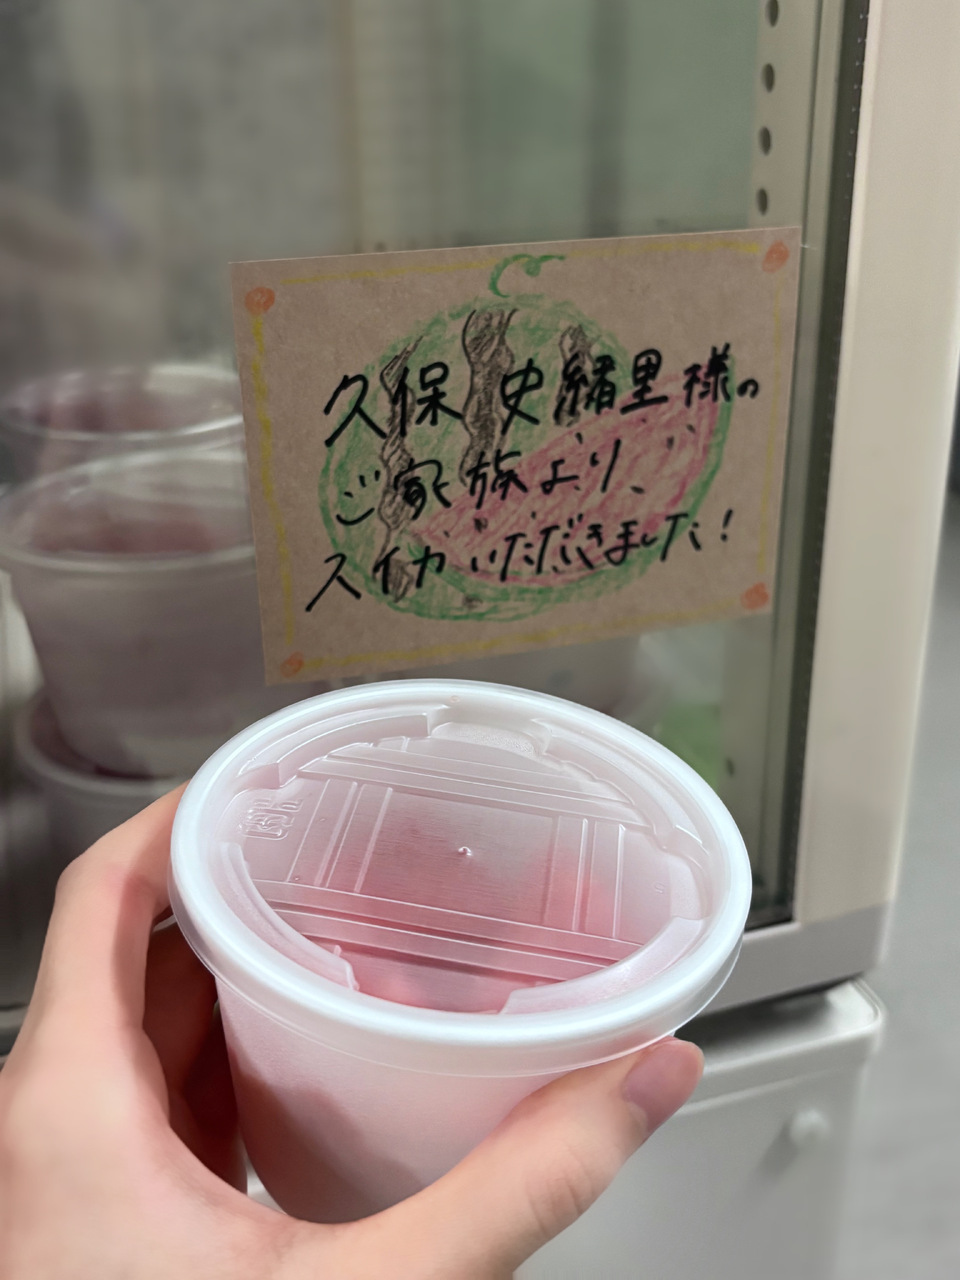 久保 史緒里様の
ご家族より
スイカいただきました!